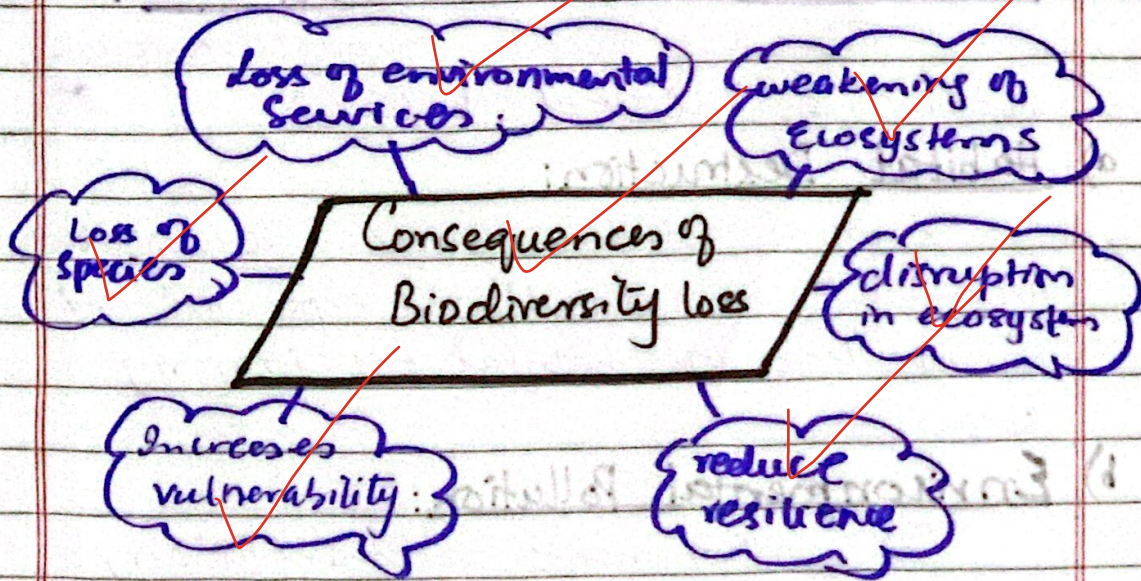 Loss of environmental
Services.
weakening of
Ecosystems
Loss of
Species
Consequences of
Biodiversity loss
disruption
in ecosystem
Increases
vulnerability.
reduce
resilience
b) Environmental Pollution: